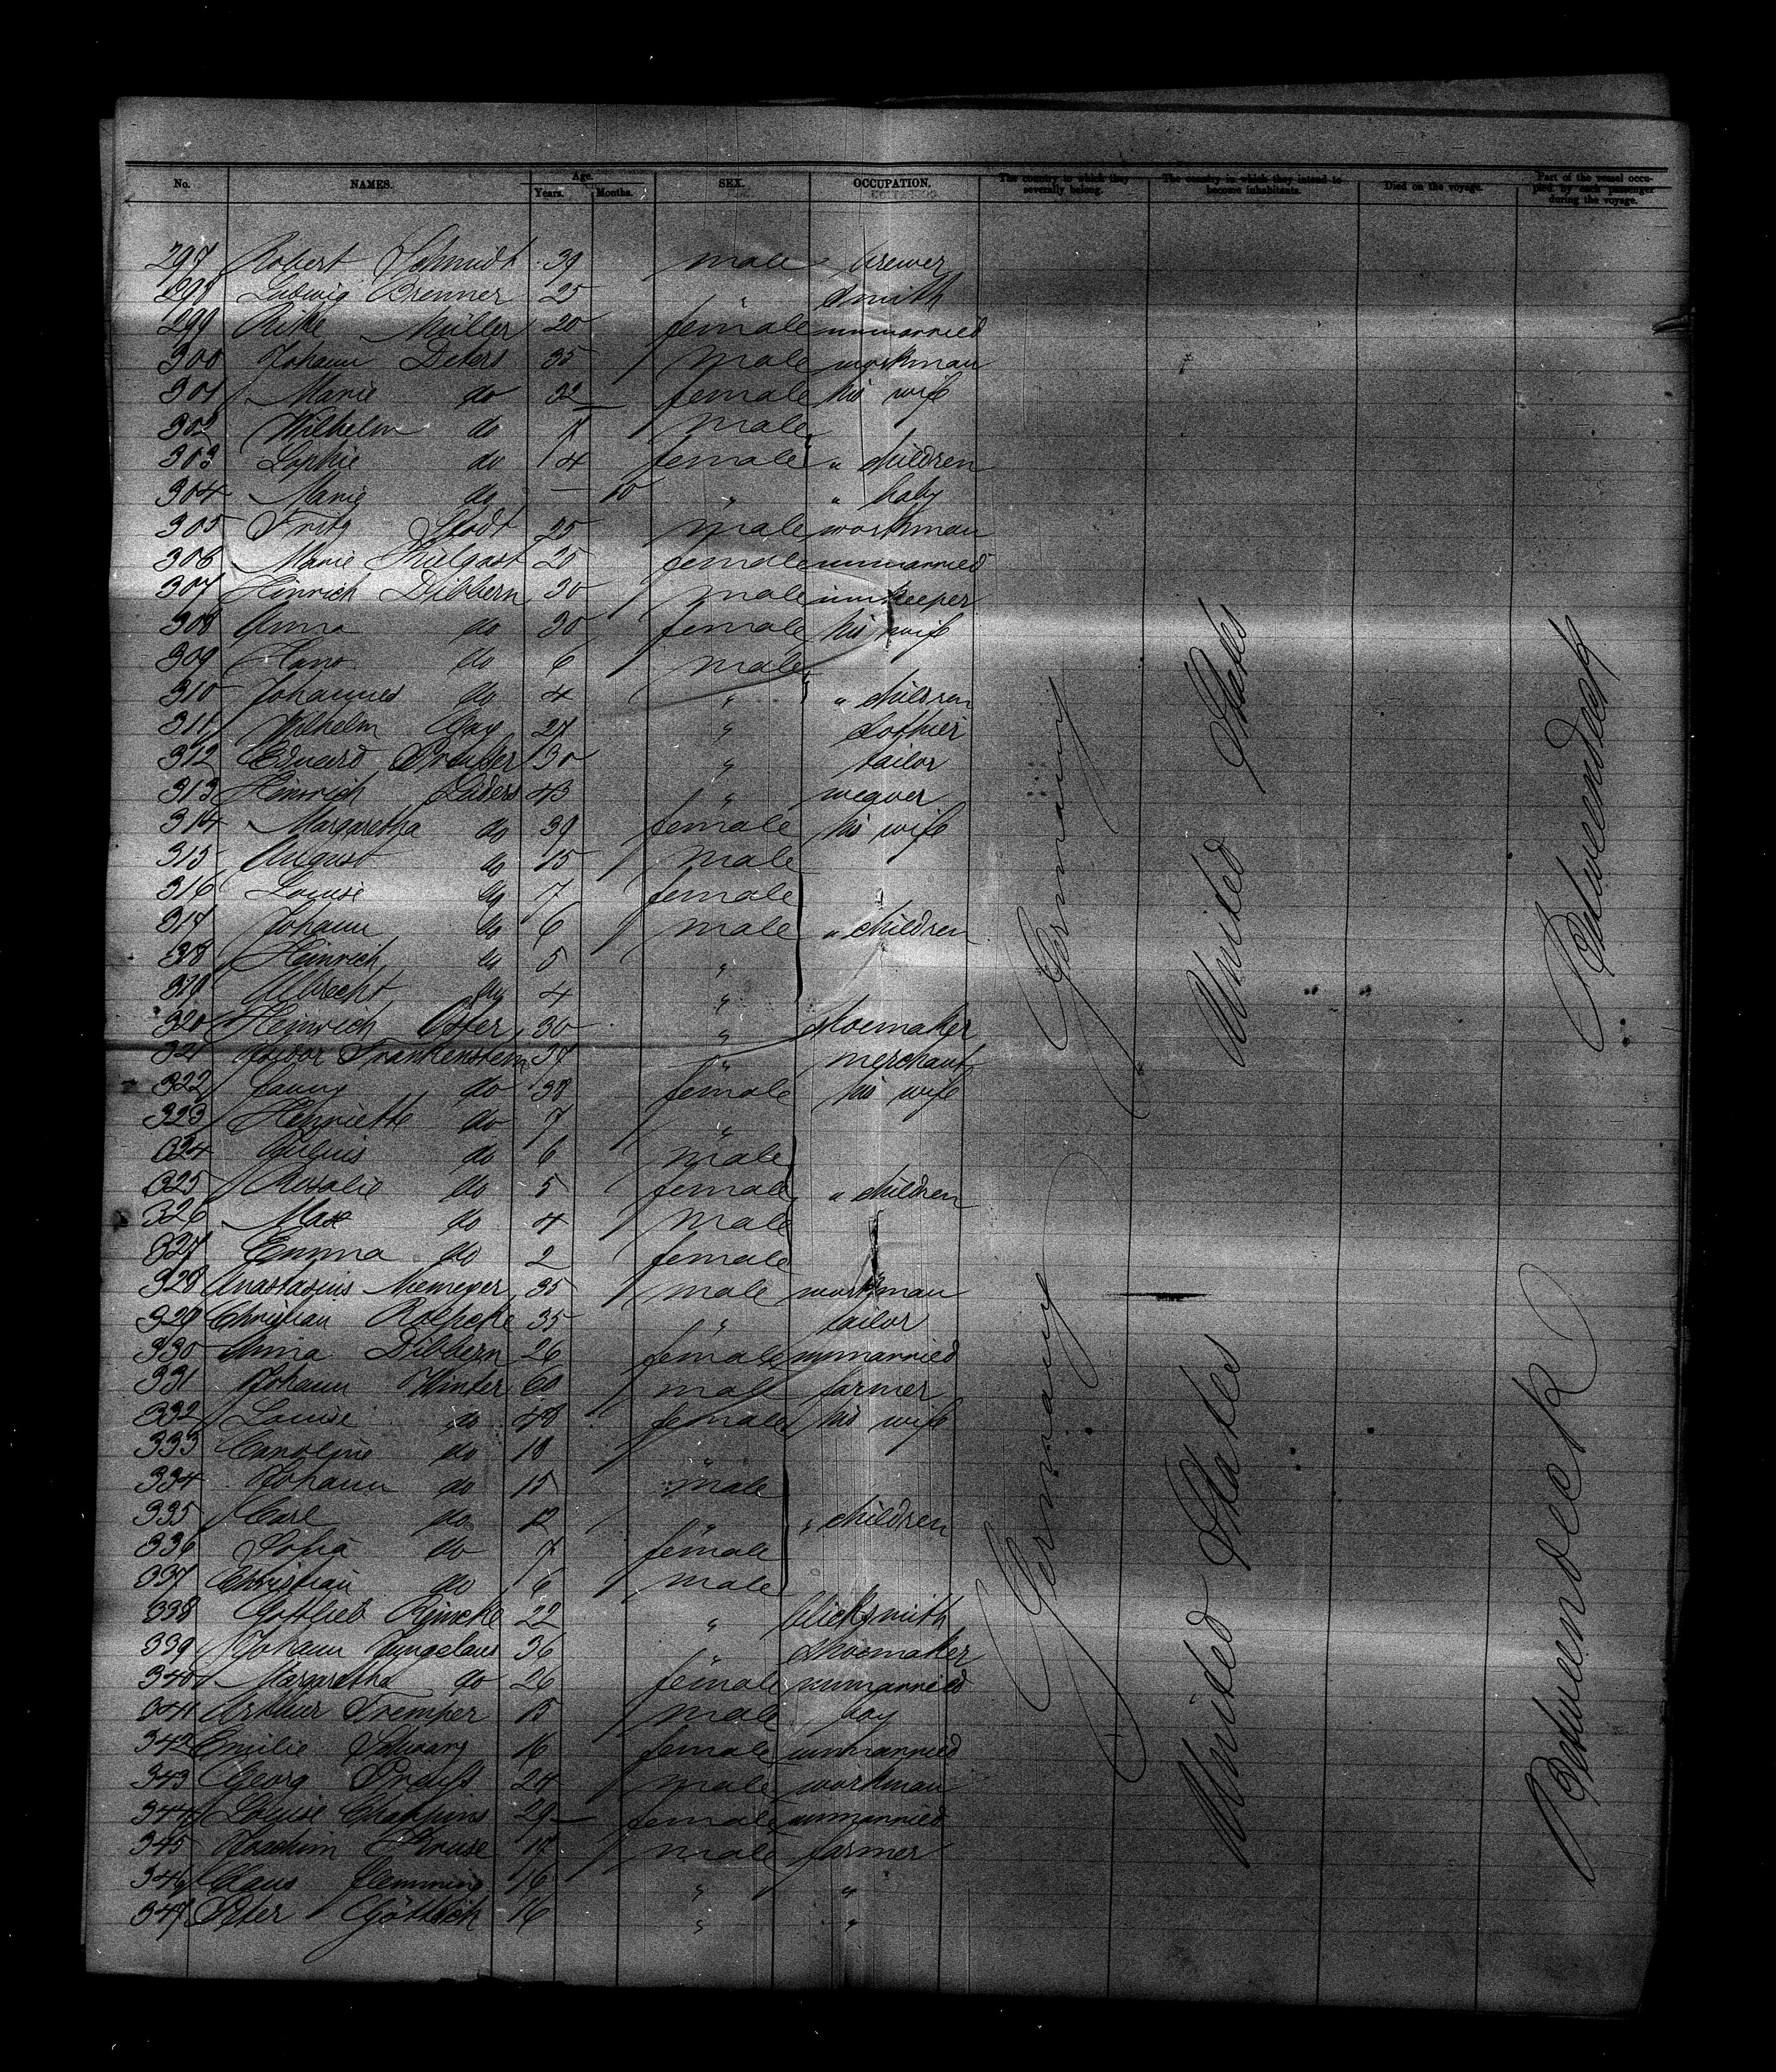 No. NAMES. Age. Years. Months. SEX. OCCUPATION. The country to which they severally belong. The country in which they intend to become inhabitants. Died on the voyage. Part of the vessel occupied by each passenger during the voyage.
297 Robert Schmidt 39 male brewer
298 Ludwig Brenner 25 " smith
299 Rike Müller 20 female unmarried
300 Johann Deters 35 male workman
301 Marie do 32 female his wife
302 Wilhelm do male
303 Sophie do 4 female " children
304 Marie do — 10 " " baby
305 Fritz 25 male workman
306 Marie 25 female unmarried
307 Hinrich Dibbern 30 male innkeeper
308 Anna do 30 female his wife
309 Hans do 6 male
310 Johannes do 4 " " children
311 Wilhelm 27 " clothier
312 Eduard 30 " tailor
313 Heinrich Lüders 43 " weaver
314 Margaretha do 39 female his wife
315 August do 15 male
316 Louise do 7 female
317 Johann do 6 male " children
318 Heinrich do 5 "
319 Albrecht do 4 "
320 Heinrich 30 " shoemaker
321 Isidor Frankenstein 37 " merchant
322 Fanny do 38 female his wife
323 Henriette do 7 "
324 Julius do 6 male
325 Rosalie do 5 female " children
326 Max do 4 male
327 Emma do 2 female
328 Anastasius Niemeyer 35 male workman
329 Christian Roepcke 35 " tailor
330 Anna Dibbern 26 female unmarried
331 Johann Winter 60 male farmer
332 Louise do 48 female his wife
333 Caroline do 18 "
334 Johann do 15 male
335 Carl do 12 " " children
336 Sofia do 7 female
337 Christian do 6 male
338 Gottlieb 22 " blicksmith
339 Johann Jungclaus 36 " shoemaker
340 Margaretha do 26 female unmarried
341 Arthur Tremper 15 male boy
342 Emilie Schwarz 16 female unmarried
343 Georg 24 male workman
344 Louise 29 female unmarried
345 Joachim Kruse male farmer
346 Claus Flemming 16 " "
347 Peter 16 " "
Germany
United States
Betweendeck
Germany
United States
Betweendeck